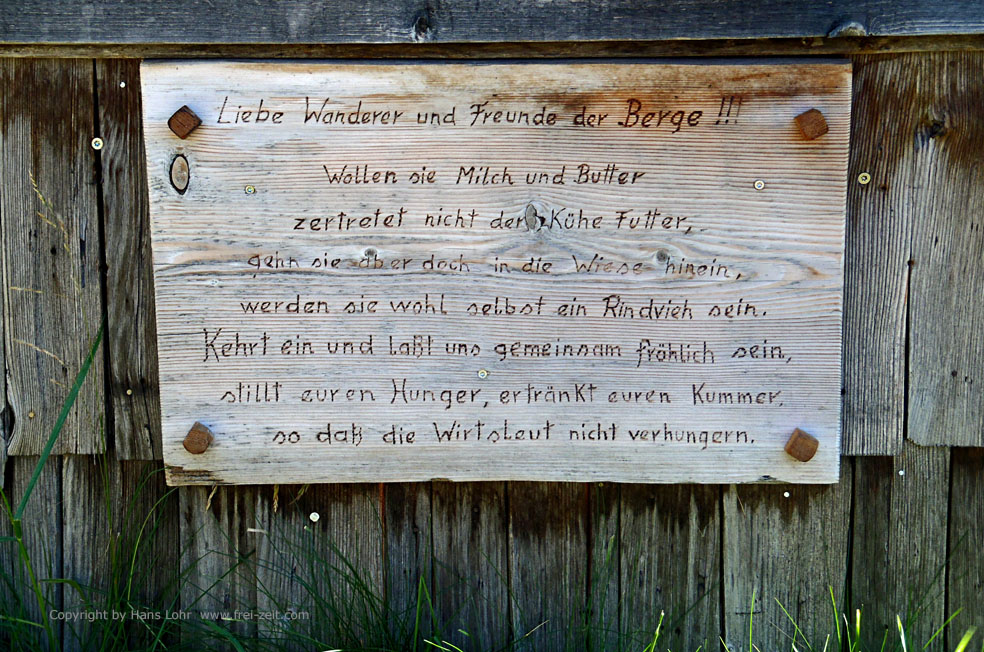 Liebe Wanderer und Freunde der Berge !!!
Wollen sie Milch und Butter
zertretet nicht der Kühe Futter,
gehn sie aber doch in die Wiese hinein,
werden sie wohl selbst ein Rindvieh sein.
Kehrt ein und laßt uns gemeinsam fröhlich sein,
stillt euren Hunger, ertränkt euren Kummer,
so daß die Wirtsleut nicht verhungern.
Copyright by Hans Lohr www.frei-zeit.com